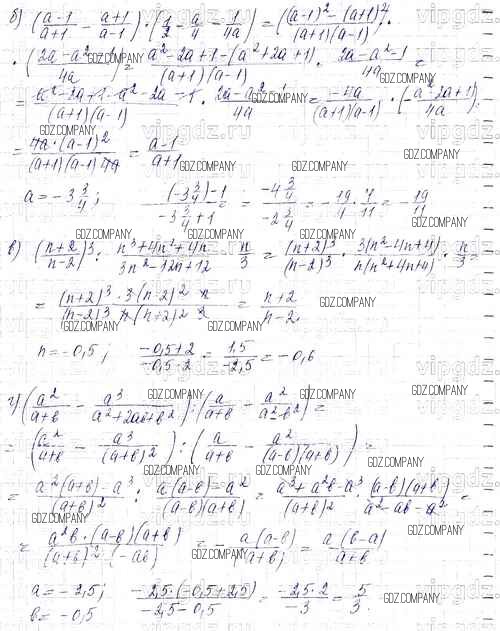 б) (a-1/a+1 - a+1/a-1) · (1/2 - a/4 - 1/4a) = ((a-1)² - (a+1)²/(a+1)(a-1)) ·
· (2a-a²-1/4a) = a²-2a+1-(a²+2a+1)/(a+1)(a-1) · 2a-a²-1/4a =
= a²-2a+1-a²-2a-1/(a+1)(a-1) · 2a-a²-1/4a = -4a/(a+1)(a-1) · (-a²-2a+1/4a)
= 4a·(a-1)²/(a+1)(a-1)4a = a-1/a+1
a = -3 3/4; (-3 3/4)-1/-3 3/4+1 = -4 3/4/-2 3/4 =
в) (n+2/n-2)³ : n³+4n²+4n/3n²-12n+12 · n/3 = (n+2)³/(n-2)³ · 3(n²-4n+4)/n(n²+4n+4) · n/3 =
= (n+2)³·3(n-2)² n/(n-2)³ n(n+2)² 3 = n+2/n-2
n = -0,5; -0,5+2/-0,5-2 = 1,5/-2,5 = -0,6
г) (a²/a+b - a³/a²+2ab+b²) : (a/a+b - a²/a²-b²) =
= (a²/a+b - a³/(a+b)²) : (a/a+b - a²/(a-b)(a+b)) =
= a²(a+b)-a³/(a+b)² : a(a-b)-a²/(a-b)(a+b) = a³+a²b-a³/(a+b)² · (a-b)(a+b)/a²-ab-a² =
= a²b·(a-b)(a+b)/(a+b)²·(-ab) = - a(a-b)/(a+b) = a(b-a)/a+b
a = -2,5; -2,5·(-0,5+2,5)/-2,5-0,5 = -2,5·2/-3 = 5/3.
b = -0,5
GDZ.COMPANY
vipgdz.ru